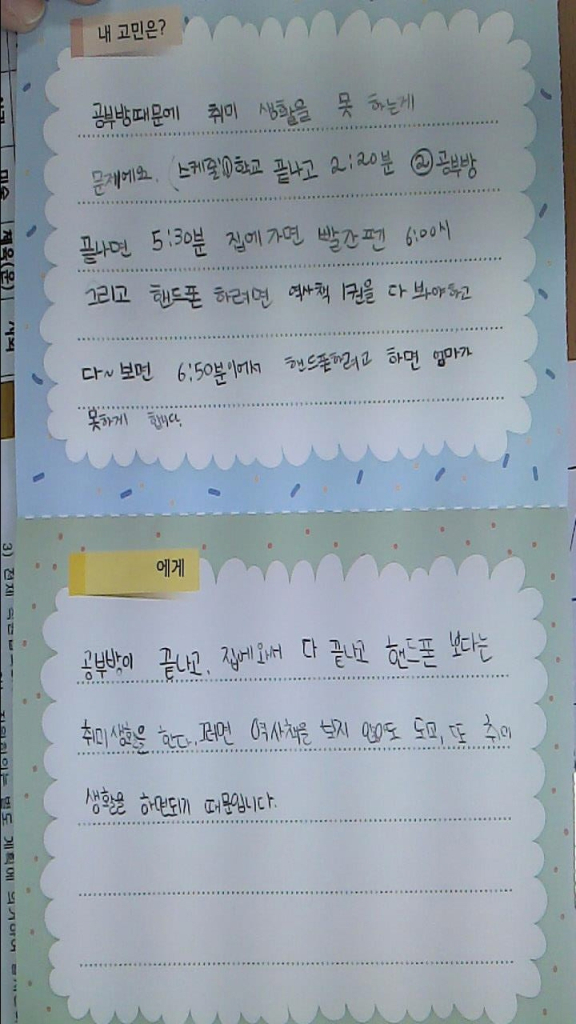 내 고민은?
공부방때문에 취미 생활을 못 하는게
문제에요. (스케줄①학교 끝나고 2:20분 ②공부방
끝나면 5:30분 집에가면 빨간펜 6:00시
그리고 핸드폰 하려면 역사책 1권을 다 봐야하고
다~보면 6:50분이에서 핸드폰하려고 하면 엄마가
못하게 합니다.
에게
공부방이 끝나고, 집에와서 다 끝나고 핸드폰 보다는
취미생활을 한다. 그러면 역사책을 보지 않아도 되고, 또 취미
생활을 하면되기 때문입니다.